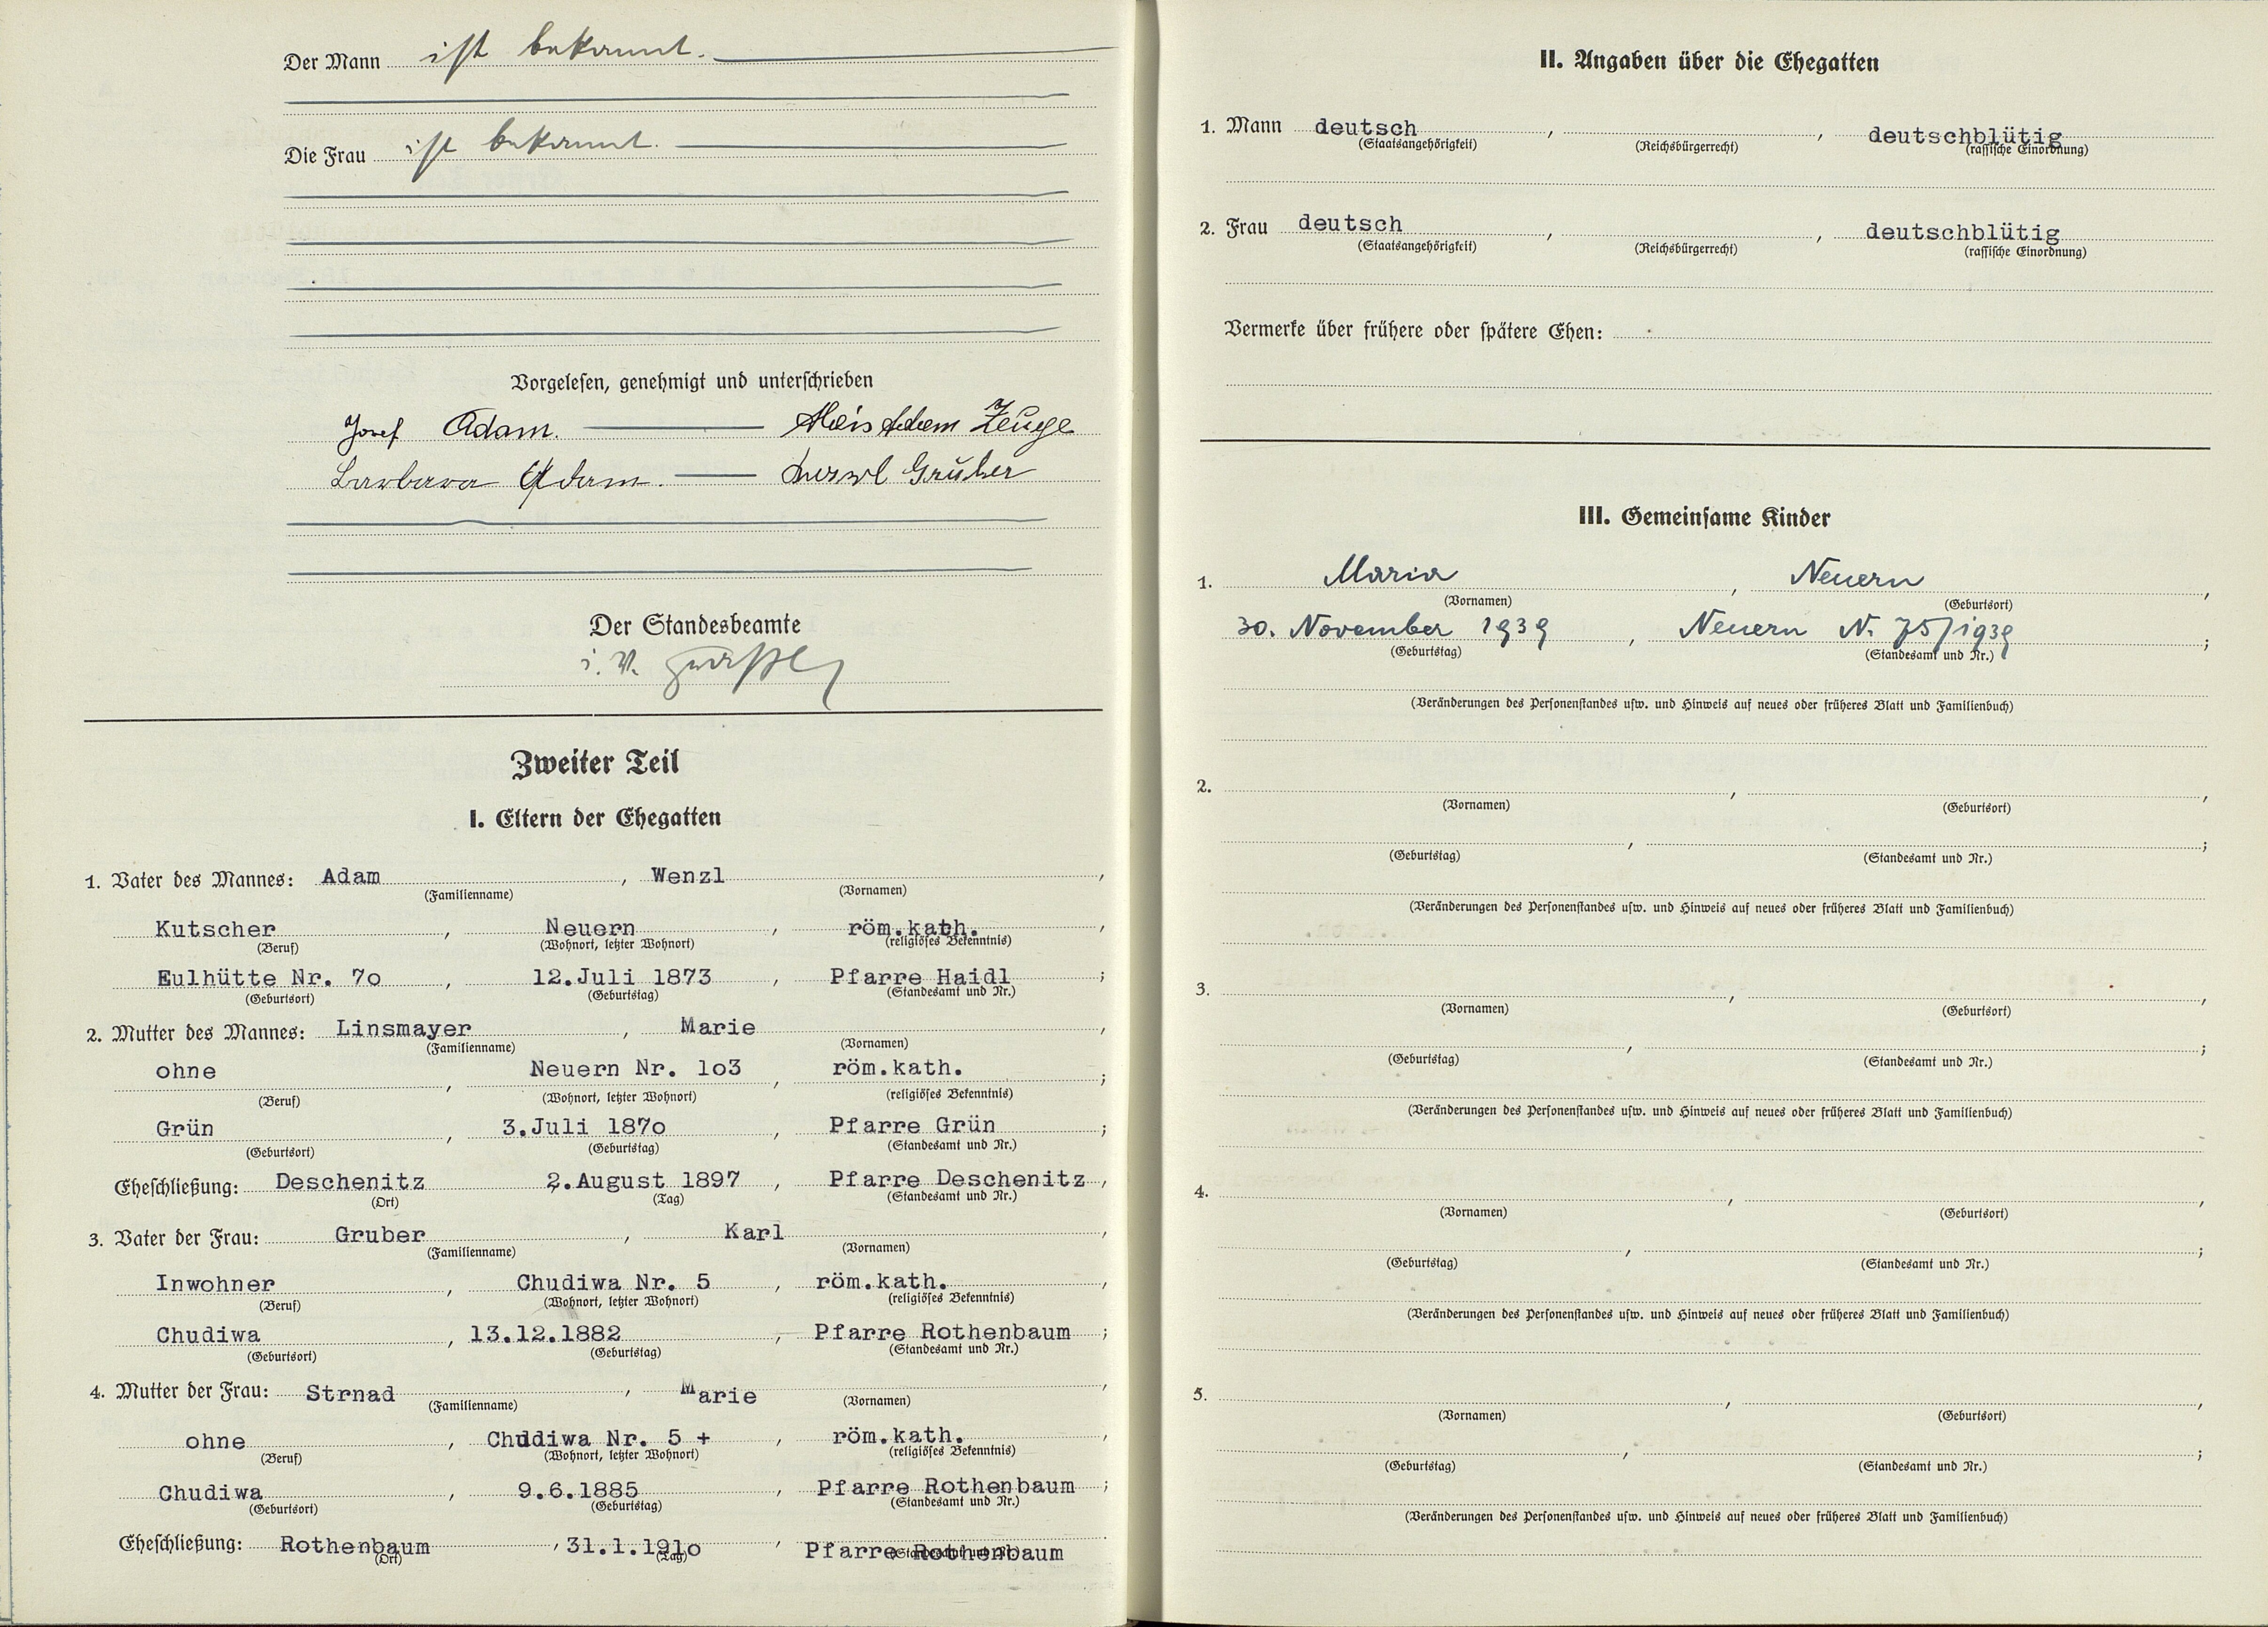 Der Mann ist bekannt.
Die Frau ist bekannt.
Vorgelesen, genehmigt und unterschrieben
Josef Adam. Alois Adam Zeuge
Barbara Adam. Gruber
Der Standesbeamte
i. V.
Zweiter Teil
I. Eltern der Ehegatten
1. Vater des Mannes: Adam, Wenzl,
(Familienname) (Vornamen)
Kutscher, Neuern, röm.kath.,
(Beruf) (Wohnort, letzter Wohnort) (religiöses Bekenntnis)
Eulhütte Nr. 7o, 12.Juli 1873, Pfarre Haidl;
(Geburtsort) (Geburtstag) (Standesamt und Nr.)
2. Mutter des Mannes: Linsmayer, Marie,
(Familienname) (Vornamen)
ohne, Neuern Nr. 1o3, röm.kath.;
(Beruf) (Wohnort, letzter Wohnort) (religiöses Bekenntnis)
Grün, 3.Juli 187o, Pfarre Grün;
(Geburtsort) (Geburtstag) (Standesamt und Nr.)
Eheschließung: Deschenitz, 2.August 1897, Pfarre Deschenitz,
(Ort) (Tag) (Standesamt und Nr.)
3. Vater der Frau: Gruber, Karl,
(Familienname) (Vornamen)
Inwohner, Chudiwa Nr. 5, röm.kath.,
(Beruf) (Wohnort, letzter Wohnort) (religiöses Bekenntnis)
Chudiwa, 13.12.1882, Pfarre Rothenbaum;
(Geburtsort) (Geburtstag) (Standesamt und Nr.)
4. Mutter der Frau: Strnad, Marie,
(Familienname) (Vornamen)
ohne, Chudiwa Nr. 5 +, röm.kath.,
(Beruf) (Wohnort, letzter Wohnort) (religiöses Bekenntnis)
Chudiwa, 9.6.1885, Pfarre Rothenbaum;
(Geburtsort) (Geburtstag) (Standesamt und Nr.)
Eheschließung: Rothenbaum, 31.1.191o, Pfarre Rothenbaum.
(Ort) (Tag) (Standesamt und Nr.)
II. Angaben über die Ehegatten
1. Mann deutsch, , deutschblütig
(Staatsangehörigkeit) (Reichsbürgerrecht) (rassische Einordnung)
2. Frau deutsch, , deutschblütig
(Staatsangehörigkeit) (Reichsbürgerrecht) (rassische Einordnung)
Vermerke über frühere oder spätere Ehen:
III. Gemeinsame Kinder
1. Maria, Neuern,
(Vornamen) (Geburtsort)
30. November 1939, Neuern N. 75/1939;
(Geburtstag) (Standesamt und Nr.)
(Veränderungen des Personenstandes usw. und Hinweis auf neues oder früheres Blatt und Familienbuch)
2. , ,
(Vornamen) (Geburtsort)
, ;
(Geburtstag) (Standesamt und Nr.)
(Veränderungen des Personenstandes usw. und Hinweis auf neues oder früheres Blatt und Familienbuch)
3. , ,
(Vornamen) (Geburtsort)
, ;
(Geburtstag) (Standesamt und Nr.)
(Veränderungen des Personenstandes usw. und Hinweis auf neues oder früheres Blatt und Familienbuch)
4. , ,
(Vornamen) (Geburtsort)
, ;
(Geburtstag) (Standesamt und Nr.)
(Veränderungen des Personenstandes usw. und Hinweis auf neues oder früheres Blatt und Familienbuch)
5. , ,
(Vornamen) (Geburtsort)
, ;
(Geburtstag) (Standesamt und Nr.)
(Veränderungen des Personenstandes usw. und Hinweis auf neues oder früheres Blatt und Familienbuch)